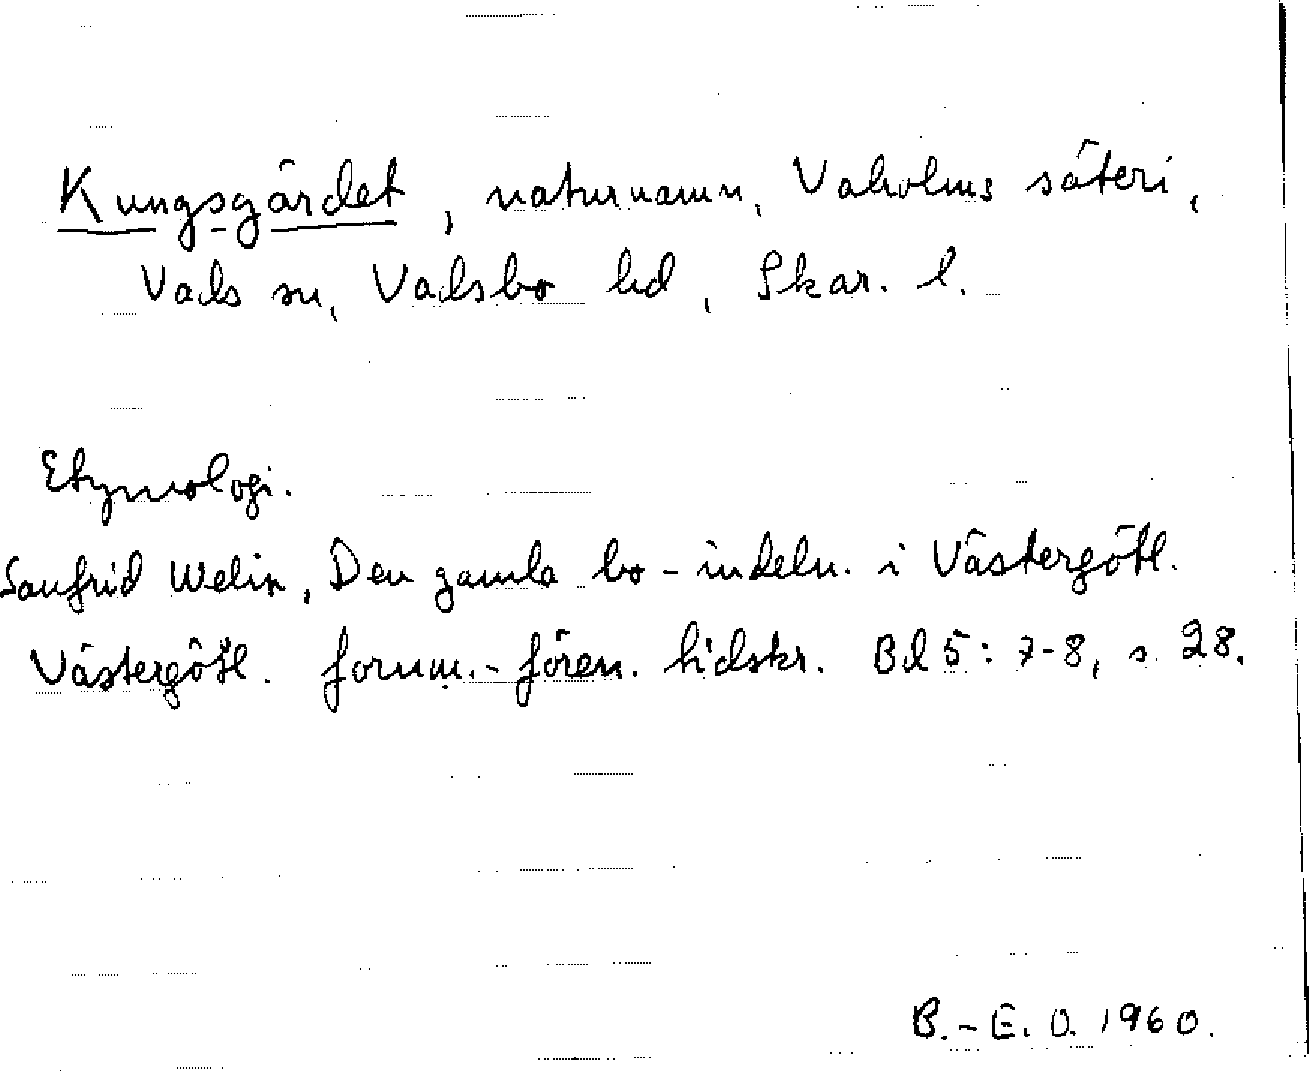 Kungsgärdet, naturnamn, Vaholms säteri,
Vads sn, Vadsbo hd, Skar. l.
Etymologi.
Sanfrid Welin, Den gamla bo-indeln. i Västergötl.
Västergötl. fornm.-fören. tidskr. Bd 5: 7-8, s. 28.
B.-E. O. 1960.